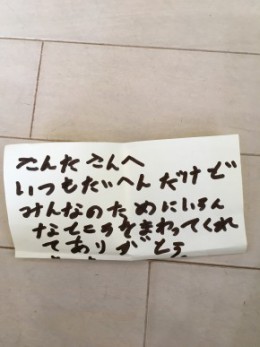 たんたさんへ
いつもだいへんだけど
みんなのためにいろん
なところをまわってくれ
てありがとう